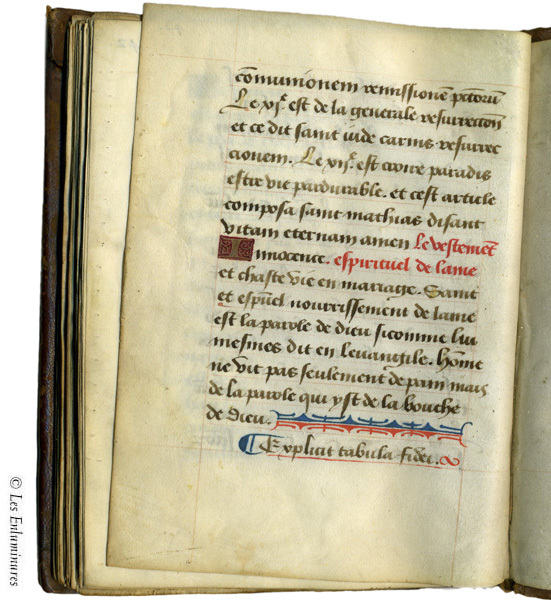 com̄unionem remissionē pctorū
Le xjᵉ. est de la generale resurrection
et ce dit saint iude carnis resurrec
cionem. Le xijᵉ. est croire paradis
estre vie pardurable. et cest article
composa saint mathias disant
Vitam eternam amen le vestemēt
Innocence. espirituel de lame
et chaste vie en mariage. Saint
et esp̄uel nourrissement de lame
est la parole de dieu sicomme lui
mesmes dit en leuangile. hōme
ne vit pas seulement de pain mais
de la parole qui yst de la bouche
de dieu.
Explicit tabula fidei.
© Les Enluminures